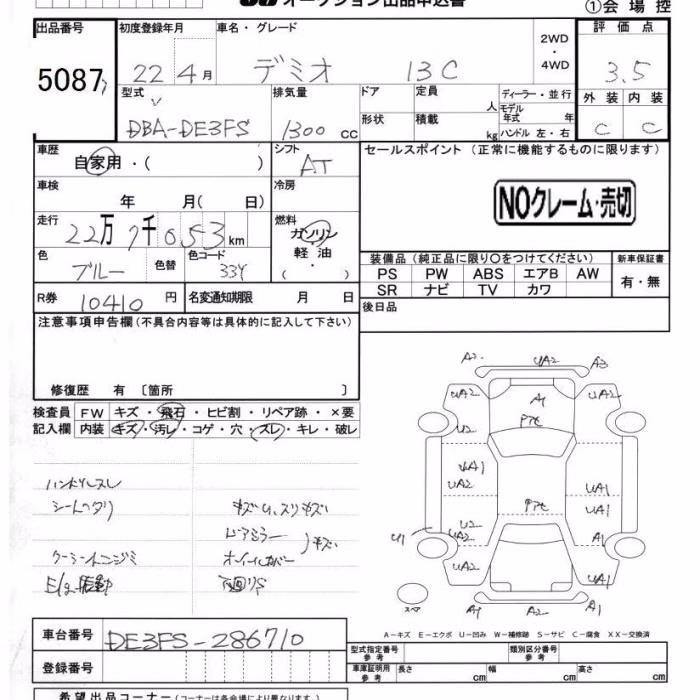 オークション出品申込書
①会場控
出品番号
5087
初度登録年月
22年4月
車名・グレード
デミオ 13C
2WD
・
4WD
評価点
3.5
外装 内装
C C
型式
DBA-DE3FS
排気量
1300 cc
ドア
定員
人
形状
積載
kg
ディーラー・並行
モデル年式 年
ハンドル 左・右
車歴
自家用・( )
シフト
AT
セールスポイント (正常に機能するものに限ります)
NOクレーム・売切
車検
年 月( 日)
冷房
走行
22万7千053km
燃料
ガソリン
軽油
( ・ )
色
ブルー
色替
色コード
33Y
装備品 (純正品に限り〇をつけてください)
新車保証書
PS PW ABS エアB AW
SR ナビ TV カワ
有・無
R券 10410 円
名変通知期限 月 日
後日品
注意事項申告欄(不具合内容等は具体的に記入して下さい)
修復歴 有 〔箇所 〕
検査員
記入欄
FW キズ・飛石・ヒビ割・リペア跡・×要
内装 キズ・汚レ・コゲ・穴・スレ・キレ・破レ
ハンドルスレ
シートヘタリ
キズU、スリキズ
ドアミラー
ホイールカバー
キズ
クーラー
E/g振動
下回りS
A2 UA2 A3
UA2 A1 UA2
U2
UA1
UA2
UA1
UA1
U2
UA2
U1
A1
UA2 UA1
A1 A2 A1
スペア
A-キズ E-エクボ U-凹み W-補修跡 S-サビ C-腐食 XX-交換済
車台番号 DE3FS-286710
登録番号
型式指定番号
参考
類別区分番号
参考
車庫証明用
参考
長さ cm 幅 cm 高さ cm
希望出品コーナー (コーナーは各会場により異なります。)